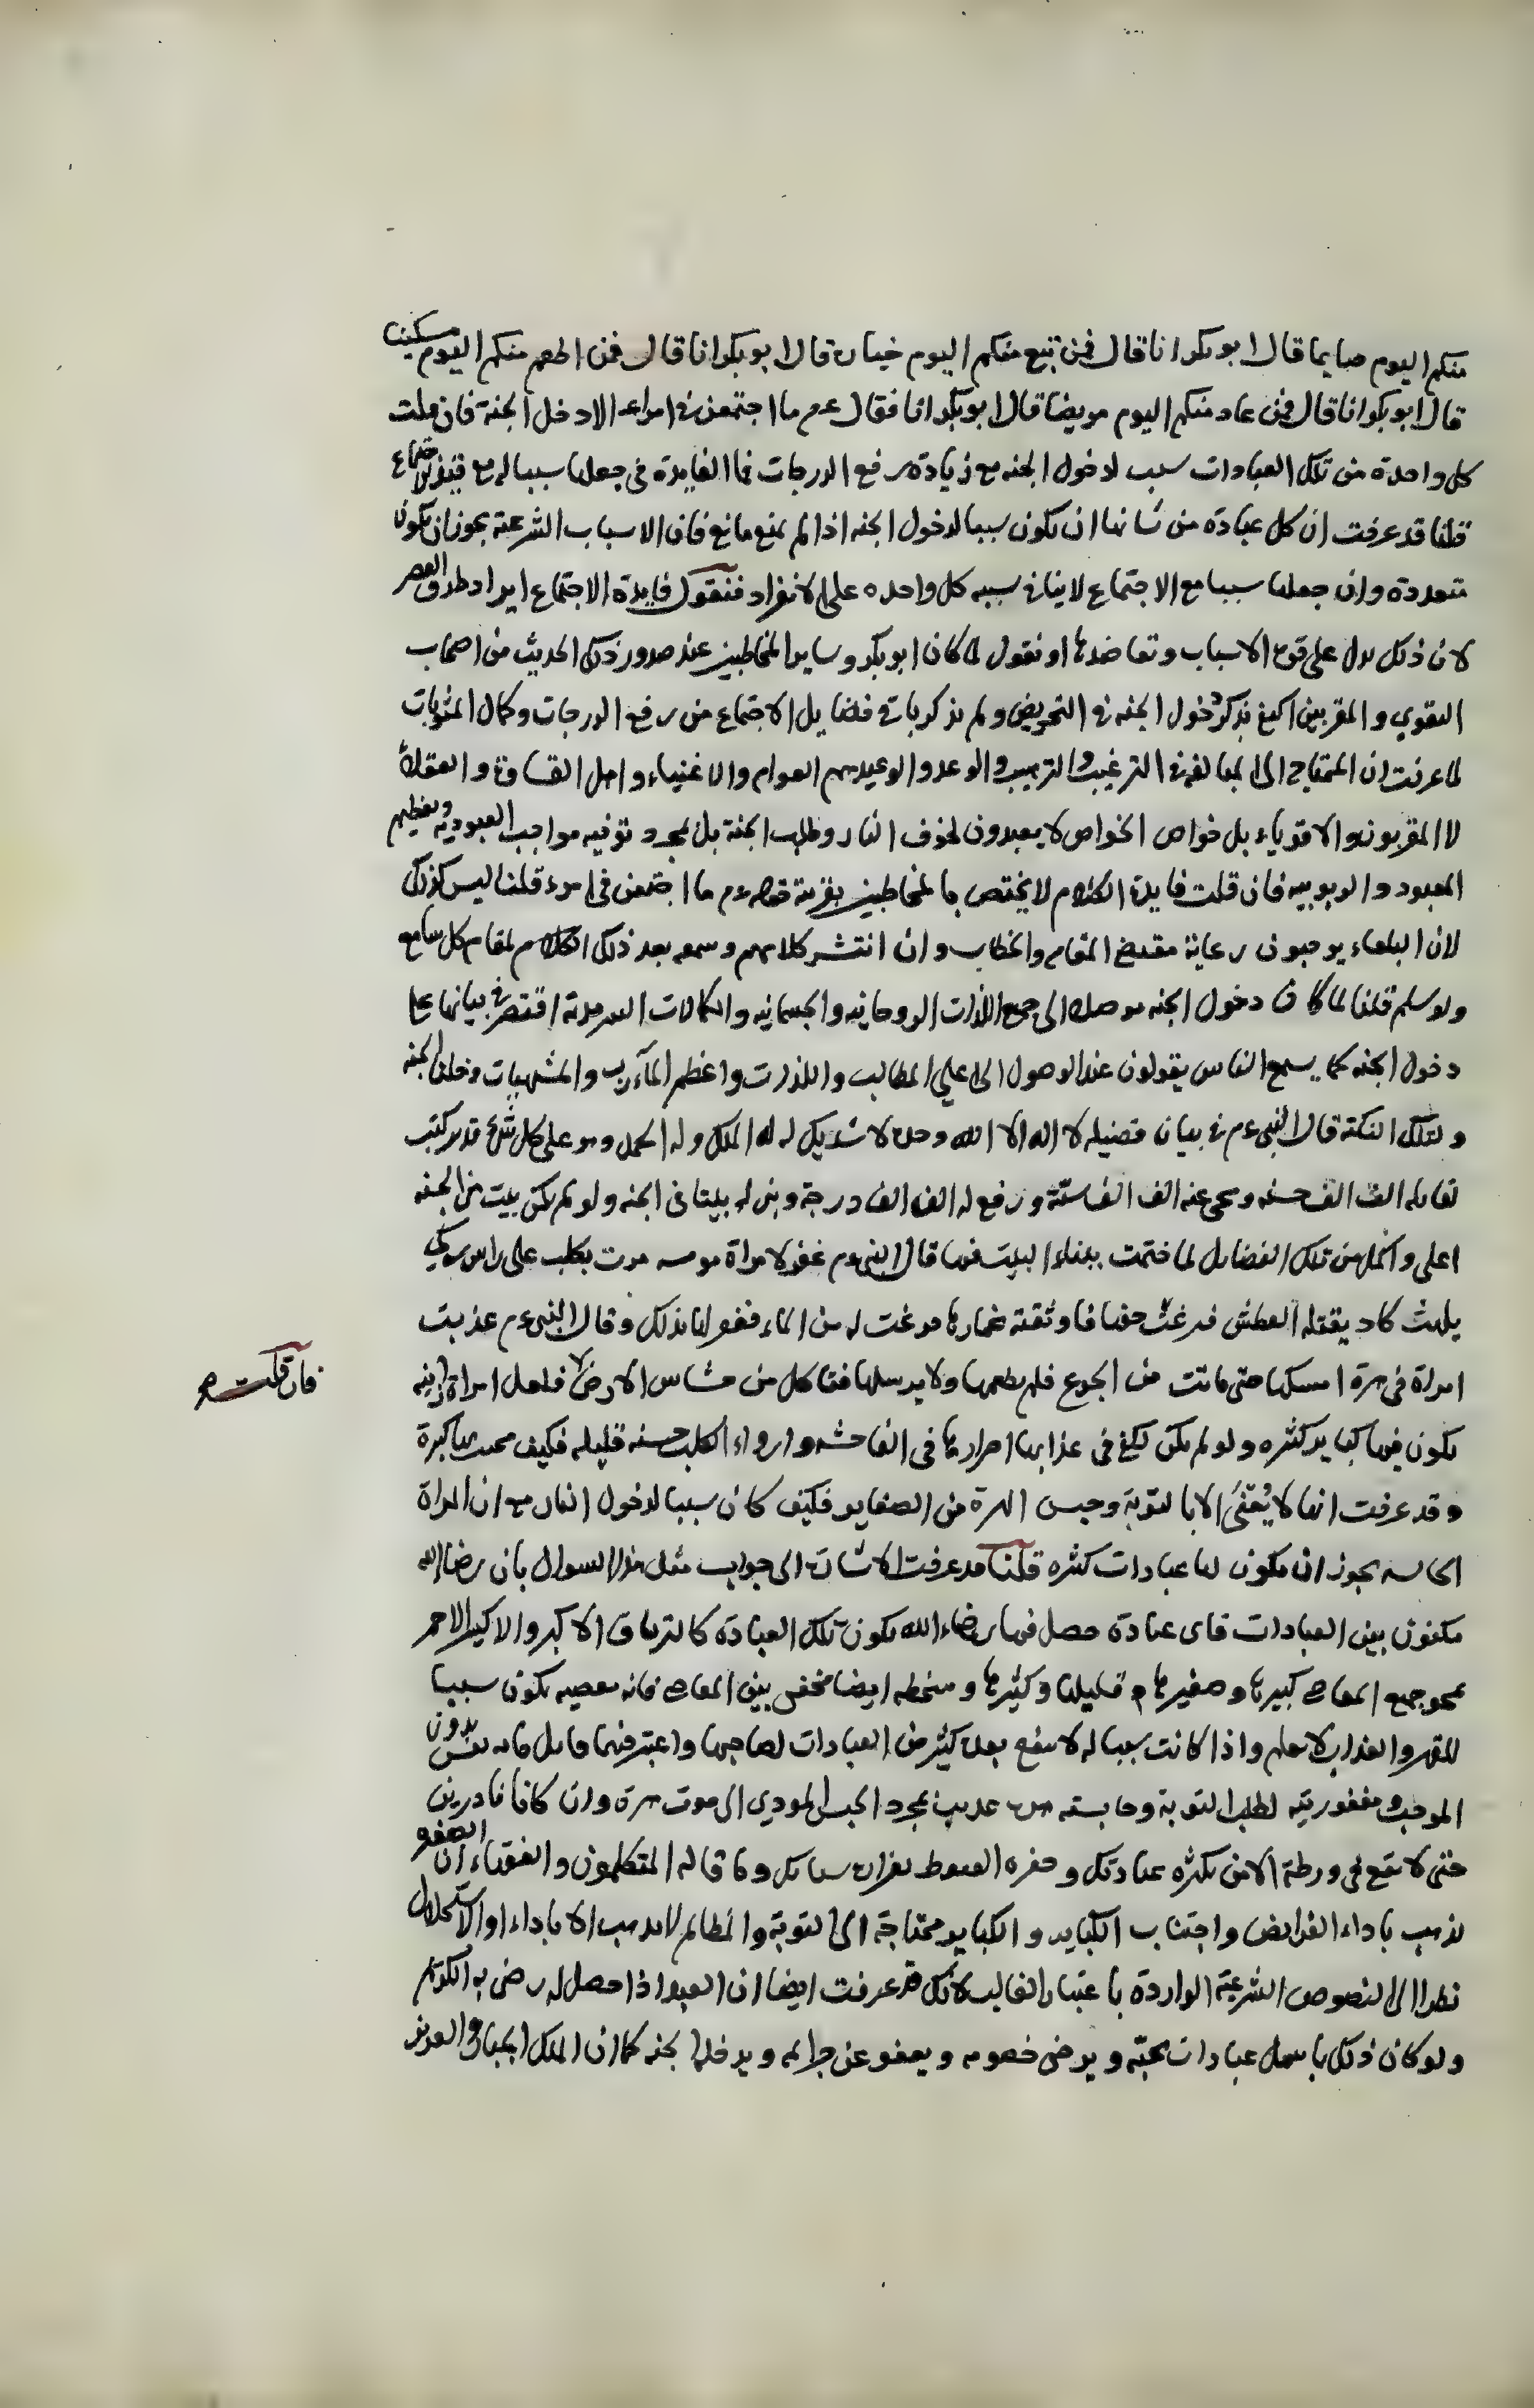 منكم اليوم صايما قال ابو بكر انا قال فمن تبع منكم اليوم جنازة قال ابو بكر انا قال فمن اطعم منكم اليوم مسكينا
قال ابو بكر انا قال فمن عاد منكم اليوم مريضا قال ابو بكر انا فقال عم ما اجتمعن في امراء الا دخل الجنة فان قلت
كل واحدة من تلك العبادات سبب لدخول الجنه مع زيادة رفع الدرجات فما الفايدة في جعلها سببا له مع الاجتماع
قلنا قد عرفت ان كل عبادة من شانها ان تكون سببا لدخول الجنه اذا لم يمنع مانع فان الاسباب الشرعية يجوز ان تكون
متعددة وان جعلها سببا مع الاجتماع لا ينافي سببيه كل واحده على الانفراد فنقول فايدة الاجتماع ايراد طريق القصر
لان ذلك يدل على قوة الاسباب وتعاضدها او نقول لما كان ابو بكر وساير المخاطبين عند صدور ذلك الحديث من اصحاب
التقوي والمقربين اكتفى بذكر دخول الجنه في التحريض ولم يذكر باقي فضايل الاجتماع من رفع الدرجات وكمال المثوبات
لما عرفت ان المحتاج الى المبالغة في الترغيب والترهيب والوعد والوعيد هم العوام والاغنياء واهل القساوة والعقلاء
لا المقربون والاقوياء بل خواص الخواص لا يعبدون لخوف النار وطلب الجنة بل لمجرد توفيه مواجب العبوديه وتعظيم
المعبود والربوبيه فان قلت فايدة الكلام لا يختص بالمخاطبين بقرينة قوله عم ما اجتمعن في امرء قلنا ليس كذلك
لان البلغاء يوجبون رعاية مقتضى المقام والخطاب وان انتشر كلامهم وسمعه بعد ذلك الكلام لمقام كل سامع
ولو سلم قلنا لما كان دخول الجنه موصلا الى جميع اللذات الروحانيه والجسمانيه والكمالات السرمدية اقتصر في بيانها على
دخول الجنه كما يسمع الناس يقولون عند الوصول الى اعلي المطالب واللذات واعظم المآرب والمشتهيات دخلنا الجنه
ولتلك النكتة قال النبي عم في بيان فضيله لا اله الا الله وحده لا شريك له له الملك وله الحمد وهو على كل شئ قدير كتب
لقايله الف الف حسنه ومحى عنه الف الف سيئة ورفع له الف الف درجة وبنى له بيتا في الجنه ولو لم يكن بيت من الجنه
اعلى واكمل من تلك الفضايل لما ختمت ببناء البيت فيها قال النبي عم غفر لامراة مومسه مرت بكلب على راس ركي
يلهث كاد يقتله العطش فنزعت خفها فاوثقته بخمارها فنزعت له من الماء فغفر لها بذلك وقال النبي عم عذبت
امراة في هرة امسكتها حتى ماتت من الجوع فلم تطعمها ولا يرسلها فتاكل من خشاش الارض فلعل امراة زانيه
فان قلت صح
يكون فيها كباير كثيره ولو لم يكن يكفى في عذابها اصرارها في الفاحشه وارواء الكلب حسنه قليله فكيف محت بها كبيرة
وقد عرفت انها لا يُعْفَى الا بالتوبة وحبس الهرة من الصغاير فكيف كان سببا لدخول النار مع ان المراة
الحابسه يجوز ان يكون لها عبادات كثيره قلنا قد عرفت الاشارة الى جواب مثل هذا السوال بان رضا الله
مكنون بين العبادات فاى عبادة حصل فيها رضاء الله يكون تلك العبادة كالترياق الاكبر والاكسير الاحمر
يمحو جميع المعاصي كبيرها وصغيرها قليلها وكثيرها وسخطه ايضا مخفى بين المعاصي فانه معصيه يكون سببا
للقهر والعذاب لا يعلم واذا كانت سببا له لا ينفع بعده كثير من العبادات لصاحبها واعتبر فيهما قابيل فانه بدون
الموجب ومغفوريته لطلب التوبة وحابسته هرة عذبت بمجرد الحبس المودي الى موت هرة وان كانا قادرين
حتى لا تقع في ورطة الامن بكثرة عبادتك وحفره القنوط بغزارة سياتك وما قاله المتكلمون والفقهاء ان الصغو
يذهب باداء الفرايض واجتناب الكباير والكباير محتاجة الى التوبة والمظالم لا يذهب الا باداء او الاستحلال
نظرا الى النصوص الشرعية الواردة باعتبار الغالب لانك قد عرفت ايضا ان العبد اذا حصل له رضى به الكريم
ولو كان ذلك باسهل عبادات يحبه ويرضى خصومه ويعفو عن جرايمه ويدخله الجنه كما ان الملك الجبار والعزيز